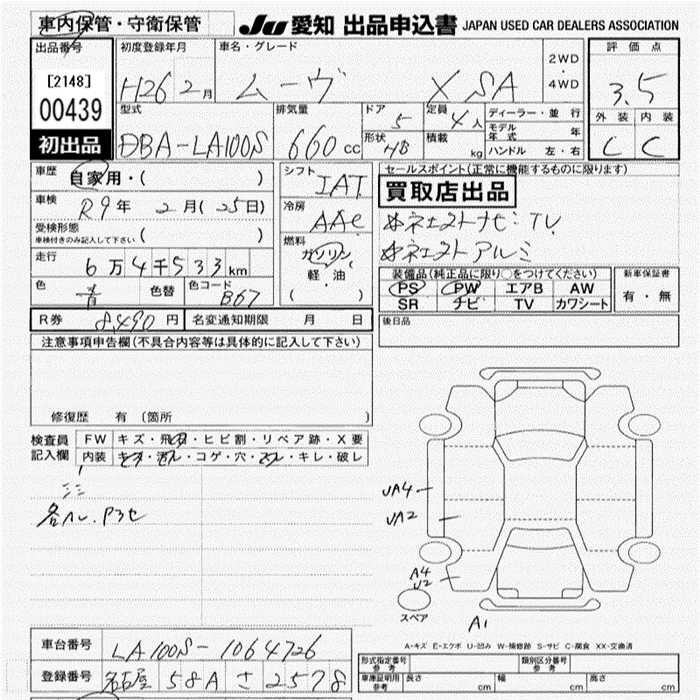 車内保管・守衛保管
JU 愛知 出品申込書 JAPAN USED CAR DEALERS ASSOCIATION
出品番号 初度登録年月 車名・グレード 2WD ・ 4WD 評価点
[2148] H26 2月 ムーヴ X SA 3.5
00439 型式 排気量 ドア 定員 ディーラー・並行 外装 内装
DBA-LA100S 660cc 5 4人 モデル年式 年 C C
初出品 形状 HB 積載 kg ハンドル 左・右
車歴 自家用・( ) シフト IAT セールスポイント(正常に機能するものに限ります)
買取店出品
車検 R9年 2月(25日) 冷房 AAC
受検形態 ( )
車検付きのみ記入して下さい
燃料 ガソリン 軽・油 ( )
走行 6万4千533km
装備品(純正品に限り○をつけてください) 新車保証書
PS PW エアB AW 有・無
SR ナビ TV カワシート
色 青 色替 色コード B67
R券 8,490円 名変通知期限 月 日 後日品
注意事項申告欄(不具合内容等は具体的に記入して下さい)
修復歴 有 (箇所
検査員記入欄 FW キズ・飛石・ヒビ割・リペア跡・X要
内装 キズ・汚レ・コゲ・穴・スレ・キレ・破レ
UA4
UA2
A4
U2
スペア
A1
A-キズ E-エクボ U-凹み W-補修跡 S-サビ C-腐食 XX-交換済
車台番号 LA100S-1064726
型式指定番号 参考 類別区分番号 参考
登録番号 名古屋 58A さ 2578
車庫証明用 参考 長さ cm 幅 cm 高さ cm